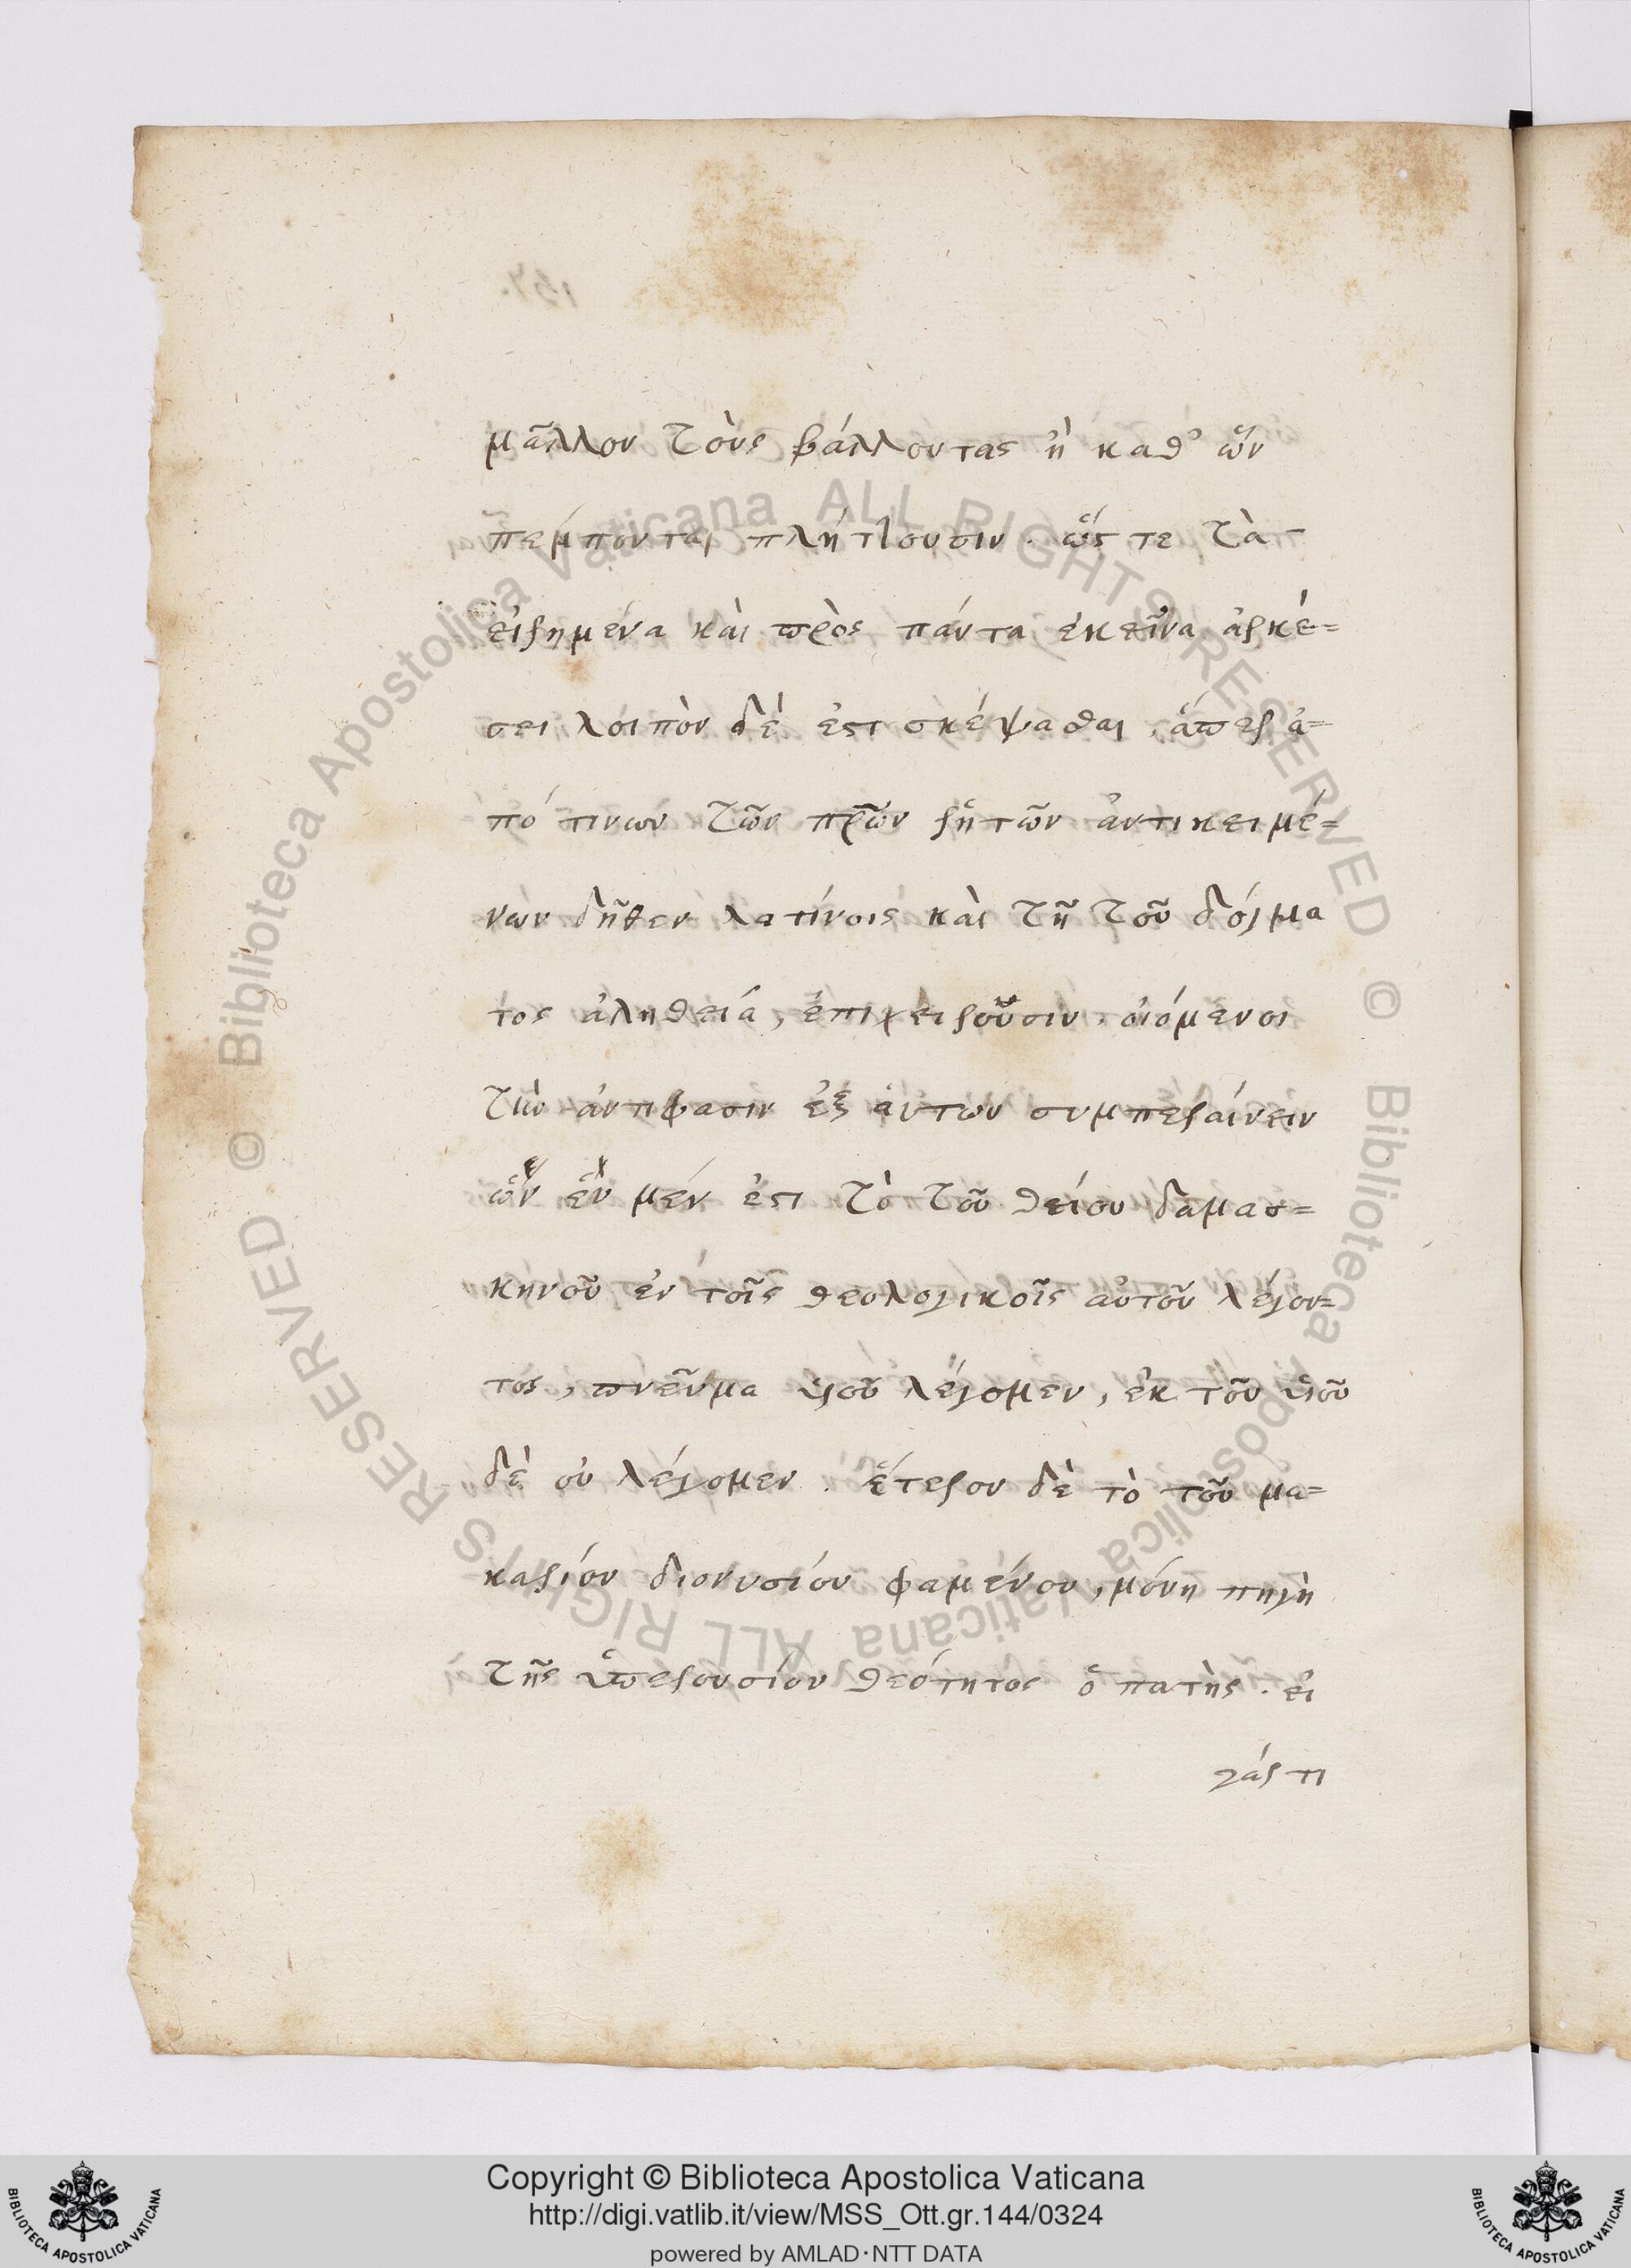 μᾶλλον τοὺς βάλλοντας ἢ καθ' ὧν
πέμπονται πλήττουσιν. ὥς τε τὰ
εἰρημένα καὶ πρὸς πάντα ἐκεῖνα ἀρκέ=
σει λοιπὸν δέ ἐστι σκέψασθαι, ἅπερ ἀ=
πό τινων τῶν πρῶν ῥητῶν ἀντικειμέ=
νων δῆθεν λατίνοις καὶ τῆ τοῦ δόγμα
τος ἀληθεία, ἐπιχειροῦσιν, οἰόμενοι
τὴν ἀντίφασιν ἐξ αὐτων συμπεραίνειν
ὧν ἓν μέν ἐστι τὸ τοῦ θείου δαμασ=
κηνοῦ ἐν τοῖς θεολογικοῖς αὐτοῦ λέγον=
τος, πνεῦμα υἱοῦ λέγομεν, ἐκ τοῦ υἱοῦ
δὲ οὐ λέγομεν. ἕτερον δὲ τὸ τοῦ μα=
καρίου διονυσίου φαμένου, μόνη πηγὴ
τῆς ὑπερουσίου θεότητος ὁ πατὴρ. εἰ
γάρ τι
Copyright © Biblioteca Apostolica Vaticana
http://digi.vatlib.it/view/MSS_Ott.gr.144/0324
powered by AMLAD·NTT DATA
BIBLIOTECA APOSTOLICA VATICANA
BIBLIOTECA APOSTOLICA VATICANA
© Biblioteca Apostolica Vaticana ALL RIGHTS RESERVED
© Biblioteca Apostolica Vaticana ALL RIGHTS RESERVED